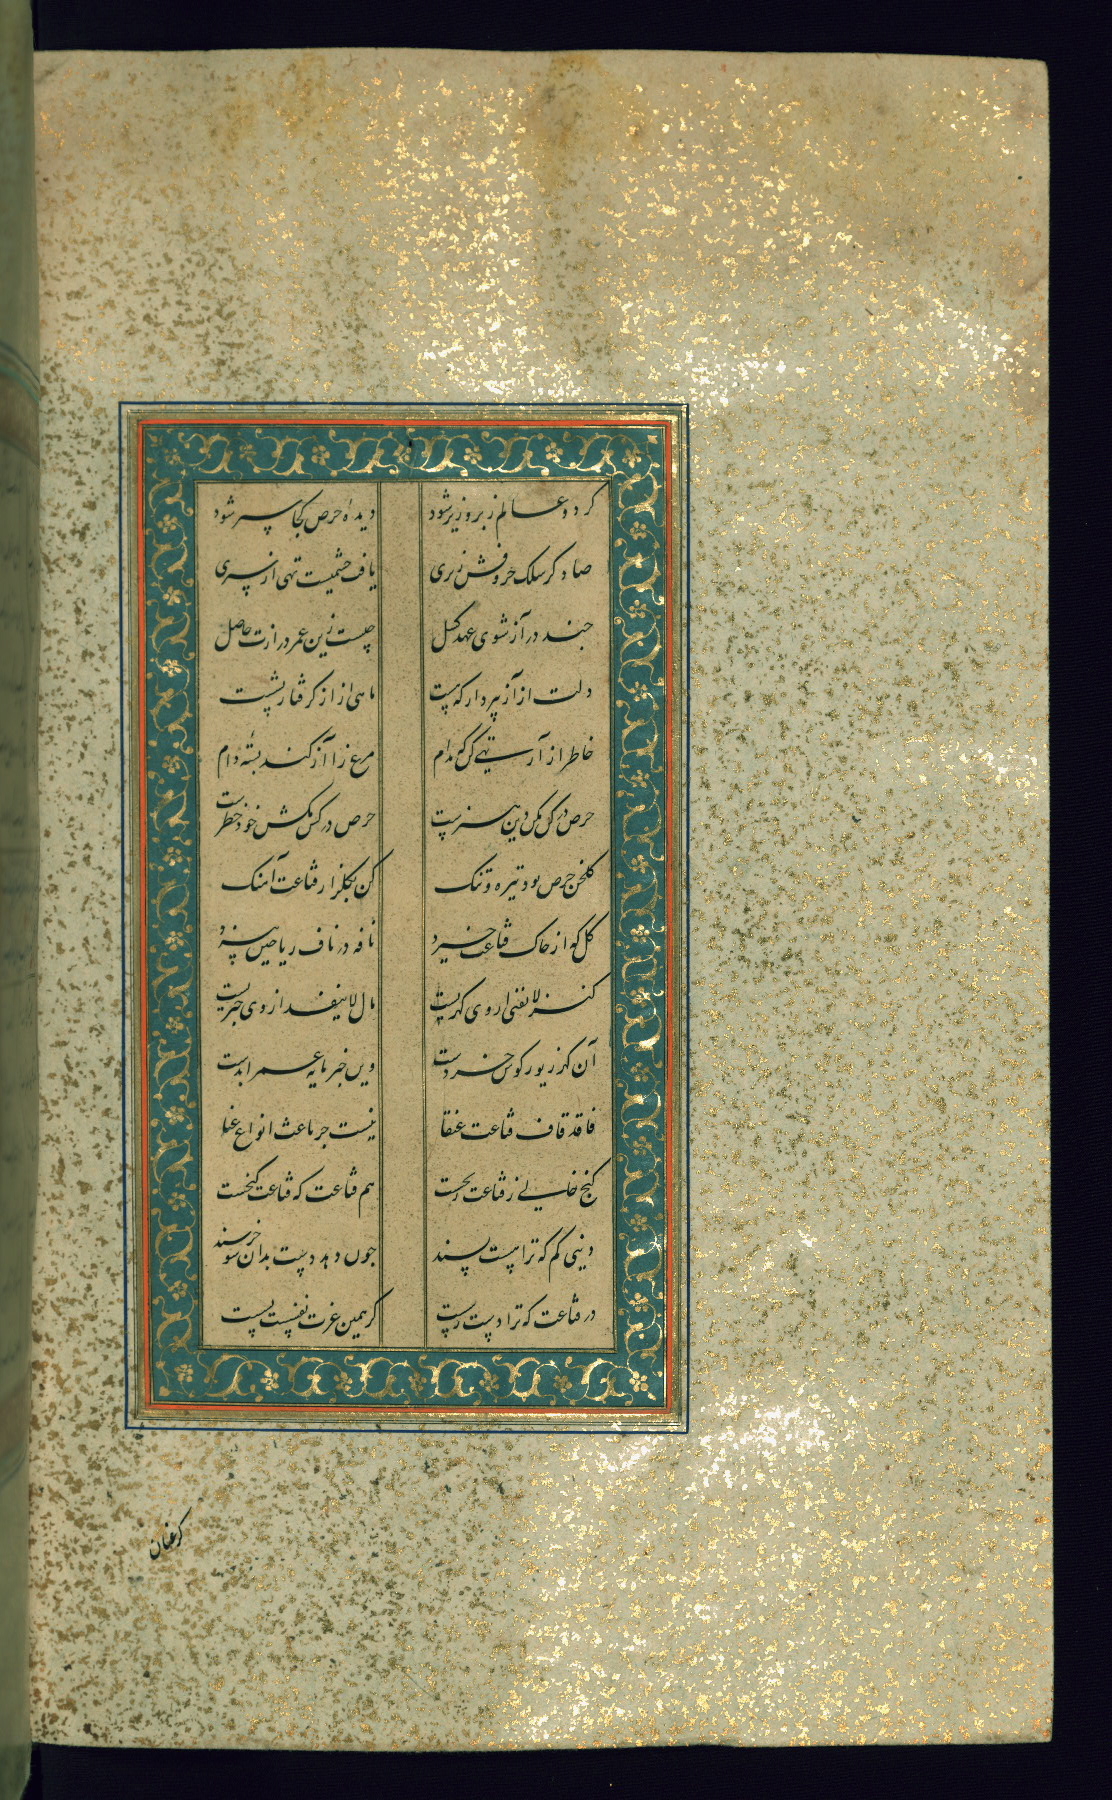 گر دو عالم زبر و زیر شود دیده حرص کجا سیر شود
صاد کز سلک حروفش نبری یافت چشمیست تهی از سیری
چند در آز شوی عهد گسل چیست زین عمر درازت حاصل
دلت از آز بپرداز که پست ماهی از آز گرفتار بشست
خاطر از آز تهی کن که مدام مرغ را آز کند بسته دام
حرص در کس مکس دین هنرست حرص در کس مکش خود خطرست
گلخن حرص بود تیره و تنگ کن بگلزار قناعت آهنگ
گل که از خاک قناعت خیزد نافه در ناف ریاحین بیزد
کنز لا یفنی از وی گهریست مال لا ینفد از وی خبریست
آن گهر زیور گوش خردست وین خبر مایه عمر ابدست
قاف قاف قناعت عنقا نیست جز باعث انواع غنا
گنج خالی ز قناعت رنجست هم قناعت که قناعت گنجست
دنیی کم که ترا هست پسند چون دهد دست بدان شو خرسند
در قناعت که ترا دست رست گر همین عزت نفسست بسست
گر عنان